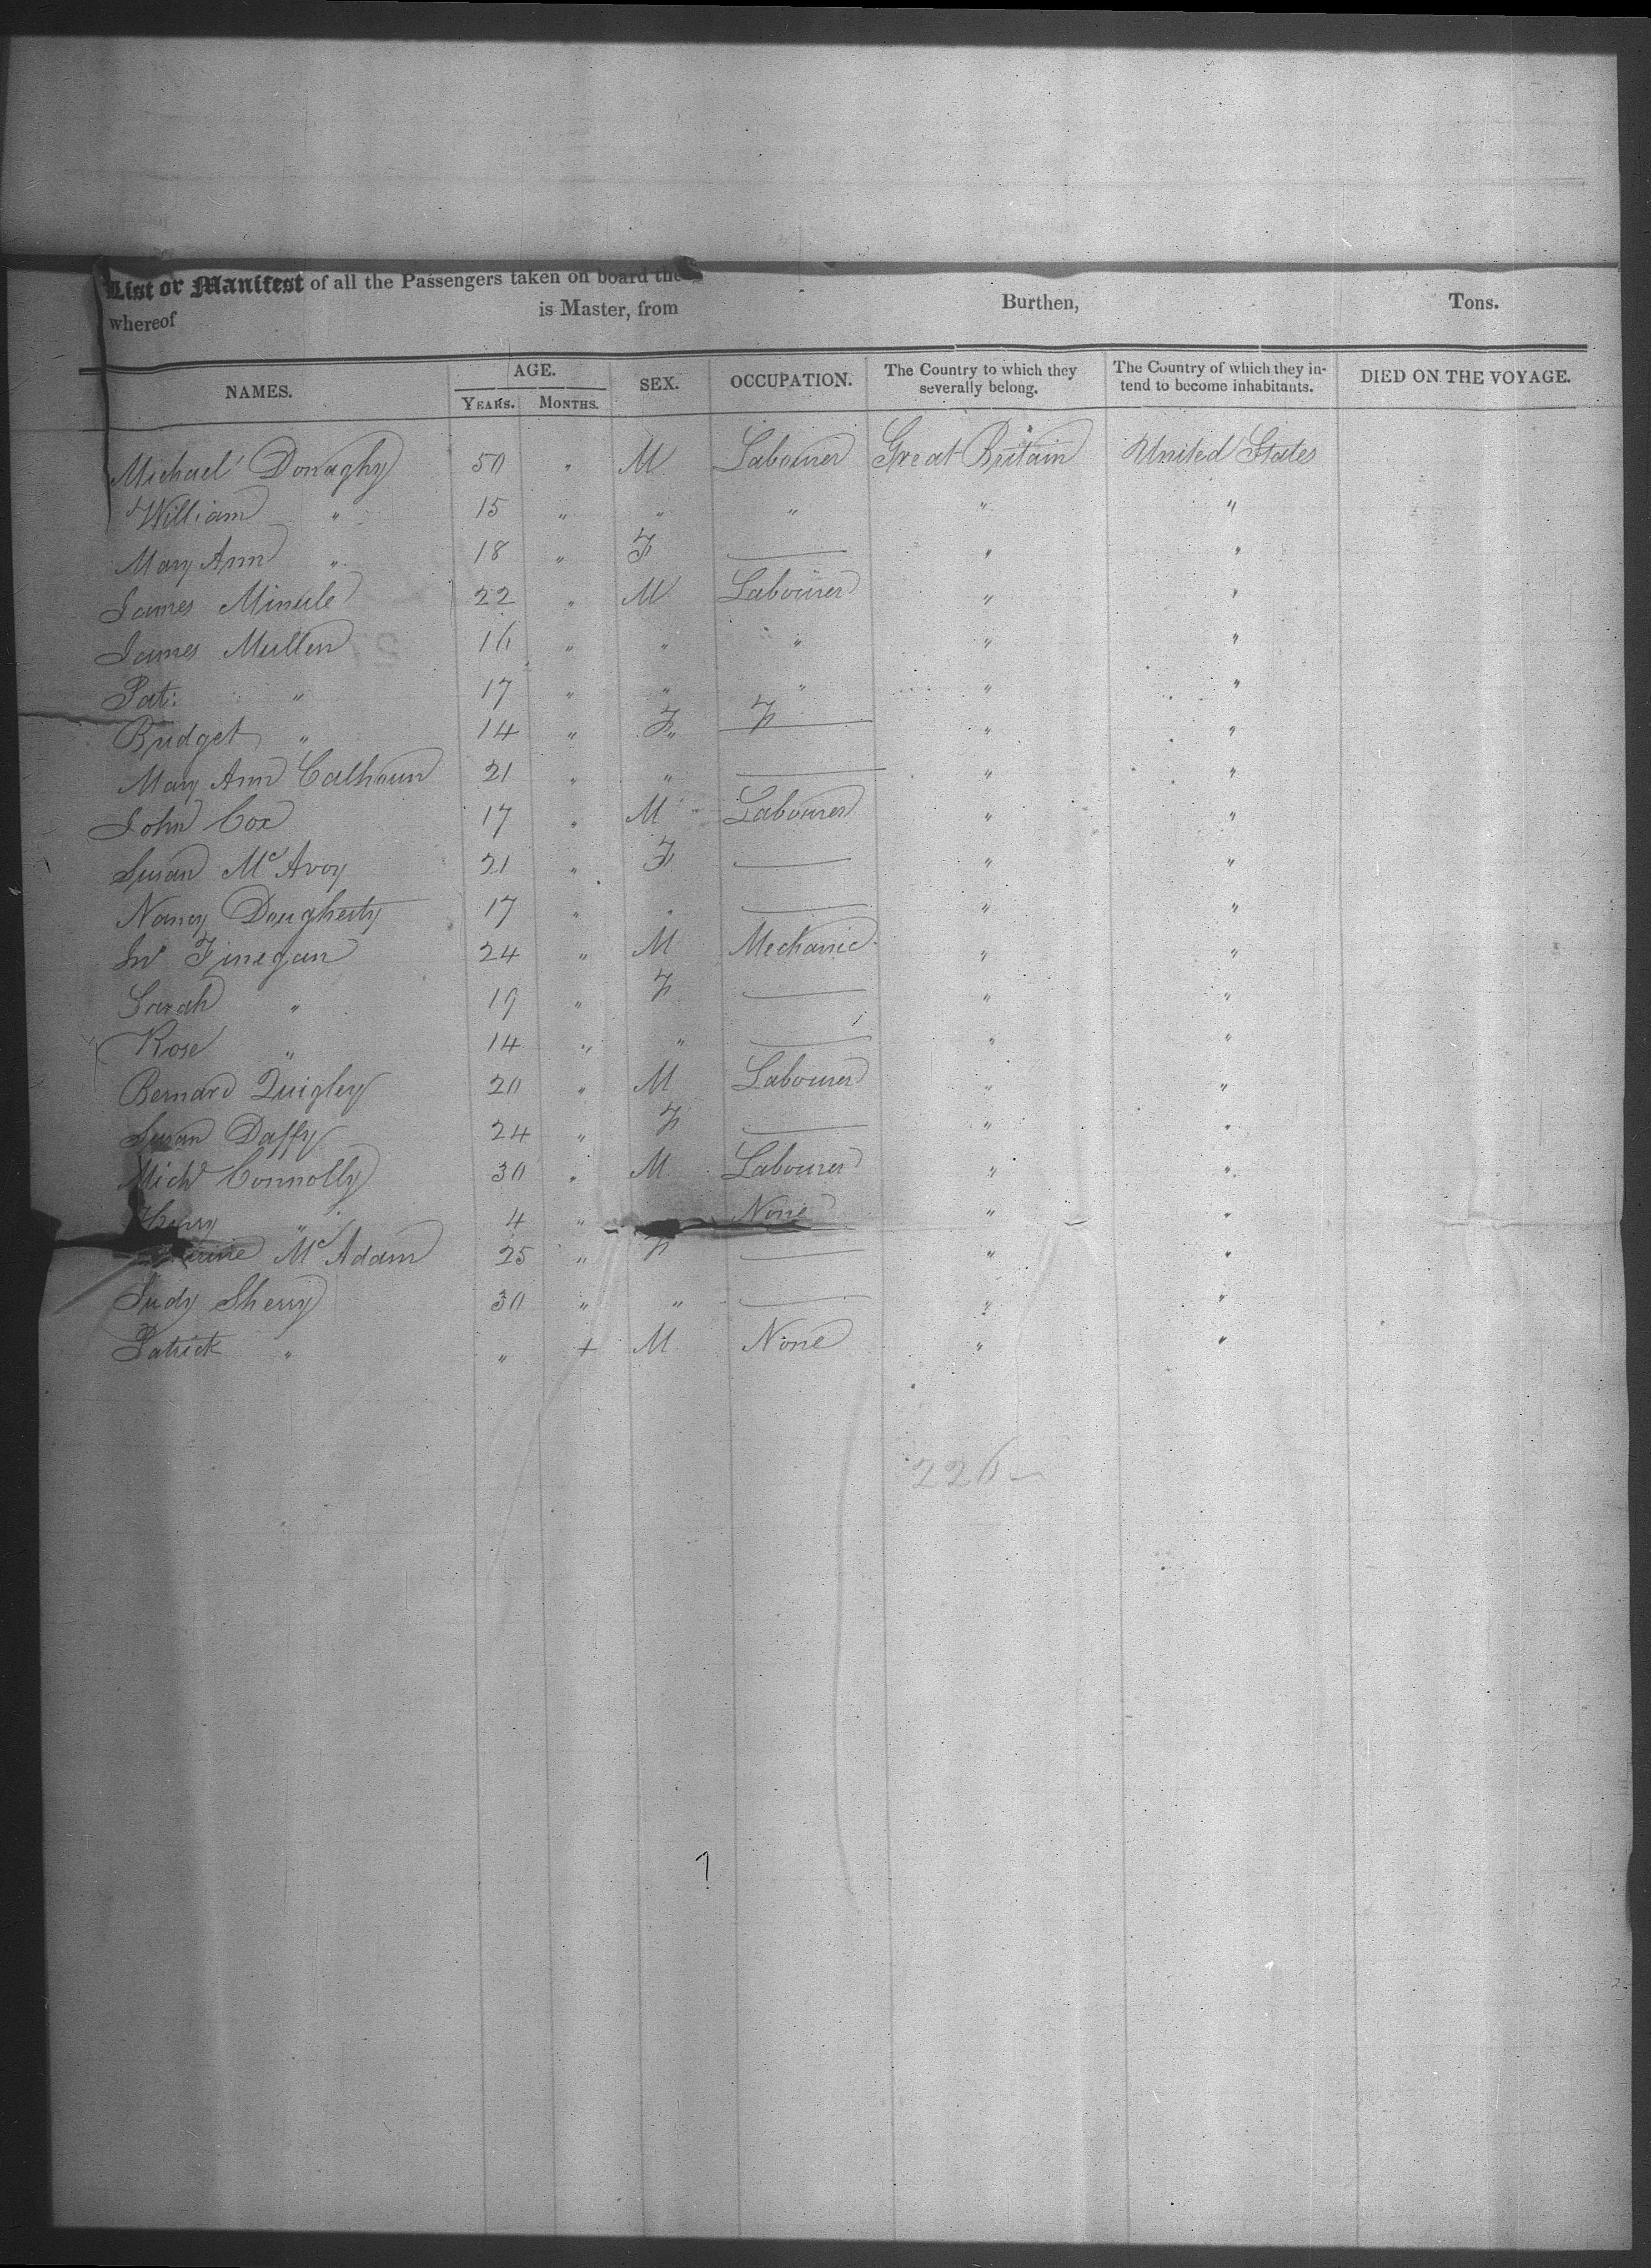 List or Manifest of all the Passengers taken on board the
whereof is Master, from Burthen, Tons.
NAMES. AGE. YEARS. MONTHS. SEX. OCCUPATION. The Country to which they severally belong. The Country of which they intend to become inhabitants. DIED ON THE VOYAGE.
Michael Donaghy 50 " M Labourer Great Britain United States
William " 15 " " " " "
Mary Ann " 18 " F — " "
James Minule 22 " M Labourer " "
James Mullen 16 " " " " "
Pat: " 17 " " " " "
Bridget " 14 " F " F — " "
Mary Ann Calhoun 21 " " — " "
John Cox 17 " M Labourer " "
Susan McAvoy 21 " F — " "
Nancy Dougherty 17 " " — " "
Jno Finegan 24 " M Mechanic " "
Sarah " 19 " F — " "
Rose " 14 " " — " "
Bernard Quigley 20 " M Labourer " "
Susan Daffy 24 " F — " "
Michl Connolly 30 " M Labourer " "
" 4 " None " "
McAdam 25 " F — " "
Judy Sherry 30 " " — " "
Patrick " " + M None " "
226